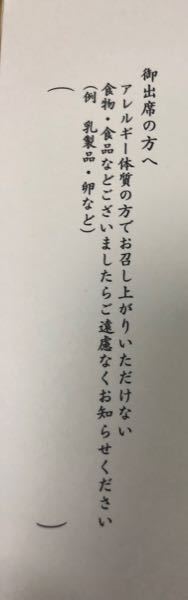 御出席の方へ
アレルギー体質の方でお召し上がりいただけない
食物・食品などございましたらご遠慮なくお知らせください
（例　乳製品・卵など）
（　　　　　　　　　　　　　　　　　　）